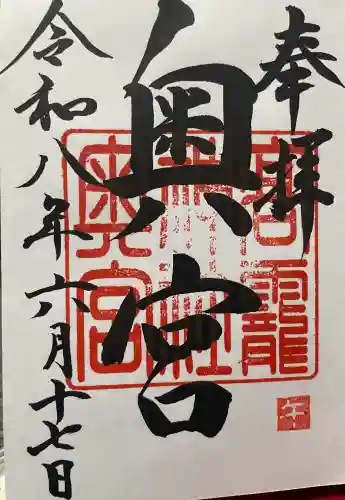 奉拝
奥宮
令和八年六月十七日
高龗
神社
奥宮
午